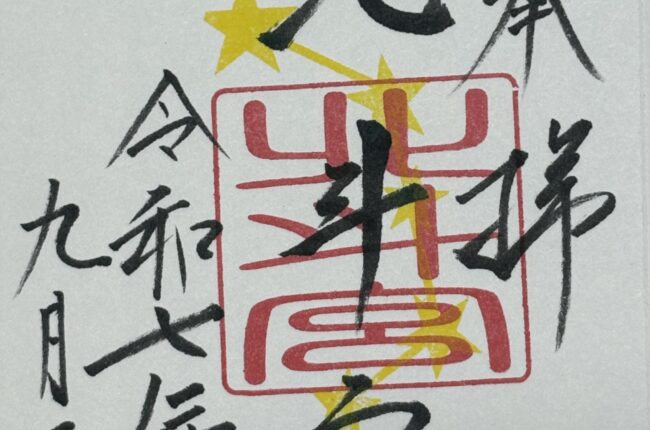 奉拝
斗
北斗宮
令和七年
九月